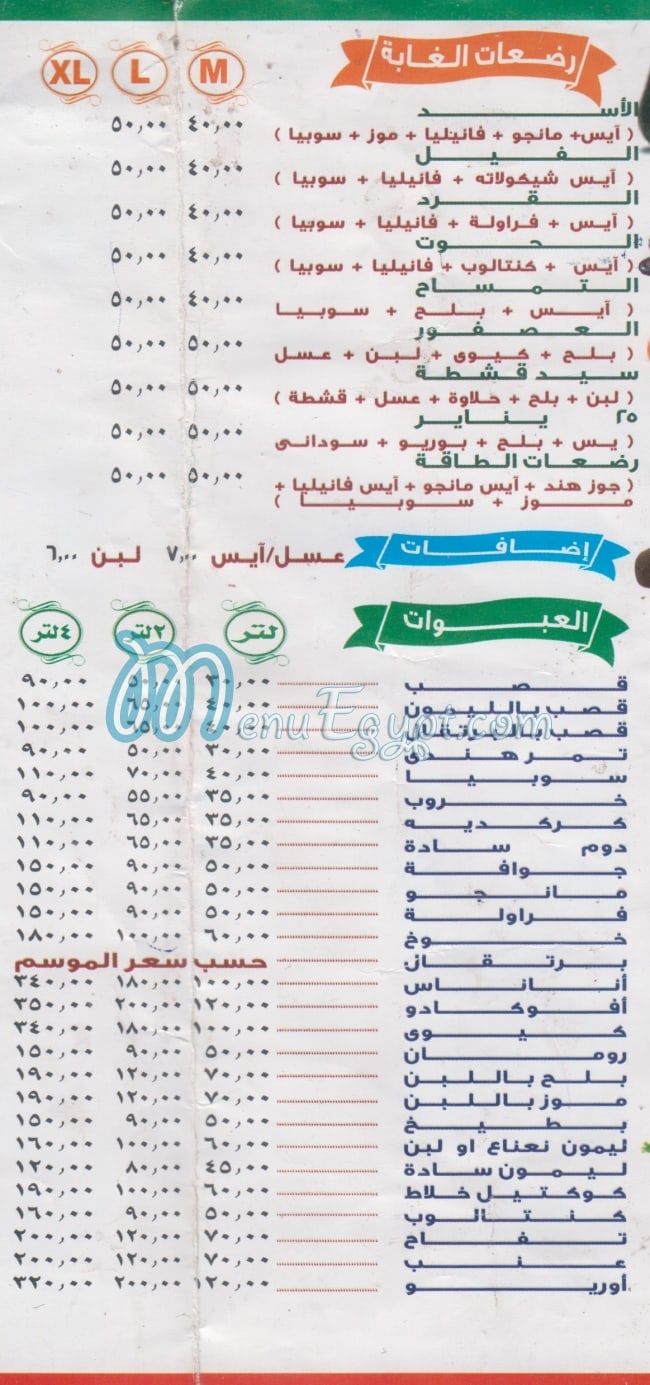 رضعات الغابة M L XL
الأسد ٤٠,٠٠ ٥٠,٠٠
( آيس+ مانجو + فانيليا + موز + سوبيا )
الفيل ٤٠,٠٠ ٥٠,٠٠
( آيس شيكولاته + فانيليا + سوبيا )
القرد ٤٠,٠٠ ٥٠,٠٠
( آيس + فراولة + فانيليا + سوبيا )
الحوت ٤٠,٠٠ ٥٠,٠٠
( آيس + كنتالوب + فانيليا + سوبيا )
التمساح ٤٠,٠٠ ٥٠,٠٠
( آيس + بلح + سوبيا
العصفور ٥٠,٠٠ ٥٠,٠٠
( بلح + كيوى + لبن + عسل
سيد قشطة ٥٠,٠٠ ٥٠,٠٠
( لبن + بلح + حلاوة + عسل + قشطة )
٢٥ يناير ٥٠,٠٠ ٥٠,٠٠
( يس + بلح + بوريو + سودانى
رضعات الطاقة ٥٠,٠٠ ٥٠,٠٠
( جوز هند + آيس مانجو + آيس فانيليا +
موز + سوبيا )
إضافات عسل/آيس ٧,٠٠ لبن ٦,٠٠
العبوات لتر ٢لتر ٤لتر
قصب ٣٠,٠٠ ٥٠,٠٠ ٩٠,٠٠
قصب بالليمون ٤٠,٠٠ ٦٥,٠٠ ١٠٠,٠٠
قصب بالبرتقال ٤٠,٠٠ ٦٥,٠٠ ١٠٠,٠٠
تمر هندى ٣٠,٠٠ ٥٠,٠٠ ٩٠,٠٠
سوبيا ٤٠,٠٠ ٧٠,٠٠ ١١٠,٠٠
خروب ٣٥,٠٠ ٥٥,٠٠ ٩٠,٠٠
كركديه ٣٥,٠٠ ٦٥,٠٠ ١١٠,٠٠
دوم سادة ٣٥,٠٠ ٦٥,٠٠ ١١٠,٠٠
جوافة ٥٠,٠٠ ٩٠,٠٠ ١٥٠,٠٠
مانجو ٥٠,٠٠ ٩٠,٠٠ ١٥٠,٠٠
فراولة ٥٠,٠٠ ٩٠,٠٠ ١٥٠,٠٠
خوخ ٦٠,٠٠ ١٠٠,٠٠ ١٨٠,٠٠
برتقال حسب سعر الموسم
أناناس ١٠٠,٠٠ ١٨٠,٠٠ ٣٤٠,٠٠
أفوكادو ١٢٠,٠٠ ٢٠٠,٠٠ ٣٥٠,٠٠
كيوى ١٠٠,٠٠ ١٨٠,٠٠ ٣٤٠,٠٠
رومان ٥٠,٠٠ ٩٠,٠٠ ١٥٠,٠٠
بلح باللبن ٧٠,٠٠ ١٢٠,٠٠ ١٩٠,٠٠
موز باللبن ٧٠,٠٠ ١٢٠,٠٠ ١٩٠,٠٠
بطيخ ٥٠,٠٠ ٩٠,٠٠ ١٥٠,٠٠
ليمون نعناع او لبن ٦٠,٠٠ ١٠٠,٠٠ ١٦٠,٠٠
ليمون سادة ٤٥,٠٠ ٨٠,٠٠ ١٢٠,٠٠
كوكتيل خلاط ٦٠,٠٠ ١٠٠,٠٠ ١٩٠,٠٠
كنتالوب ٥٠,٠٠ ٩٠,٠٠ ١٦٠,٠٠
تفاح ٧٠,٠٠ ١٢٠,٠٠ ٢٠٠,٠٠
عنب ٧٠,٠٠ ١٢٠,٠٠ ٢٠٠,٠٠
أوريو ١٢٠,٠٠ ٢٠٠,٠٠ ٣٢٠,٠٠
MenuEgypt.com